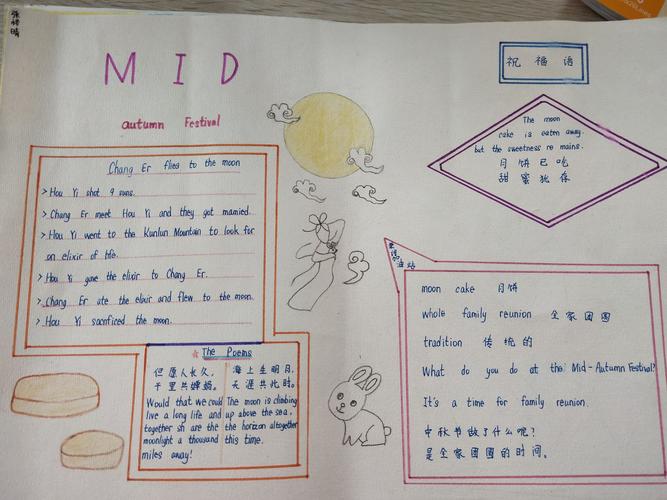 MID
autumn Festival
Chang Er flies to the moon
> Hou Yi shot 9 suns.
> Chang Er meet Hou Yi and they got married.
> Hou Yi went to the Kunlun Mountain to look for
an elixir of life.
> Hou Yi gave the elixir to Chang Er.
> Chang Er ate the elixir and flew to the moon.
> Hou Yi sacrificed the moon.
The Poems
但愿人长久,
千里共婵娟。
Would that we could
live a long life and
together sh are the
moonlight a thousand
miles away!
海上生明月,
天涯共此时。
The moon is climbing
up above the sea,
the horizon altogether
this time.
祝福语
The moon
cake is eaten away.
but the sweetness re mains.
月饼已吃
甜蜜犹存
moon cake 月饼
whole family reunion 全家团圆
tradition 传统的
What do you do at the Mid-Autumn Festival?
It's a time for family reunion.
中秋节做了什么呢?
是全家团圆的时间。